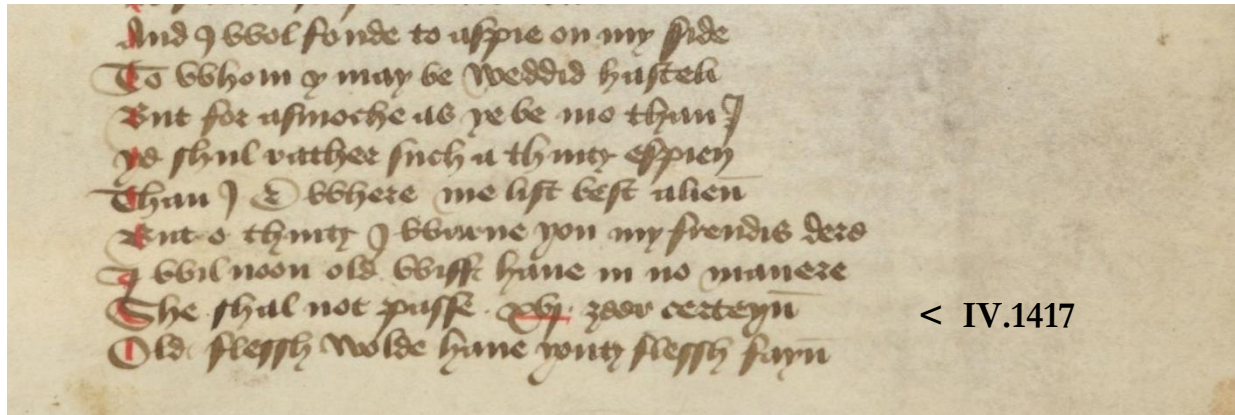 And I wol fonde to aspie on my side
To whom y may be weddid hasteli
But for asmoche as ye be mo than I
ye shul rather such a thing espien
Than I & where me list best alien
But o thing I warne you my frendis dere
I wil noon old wiff haue in no manere
She shal not passe xvj zeer certeyn
Old flessh wolde haue yong flessh fayn
< IV.1417